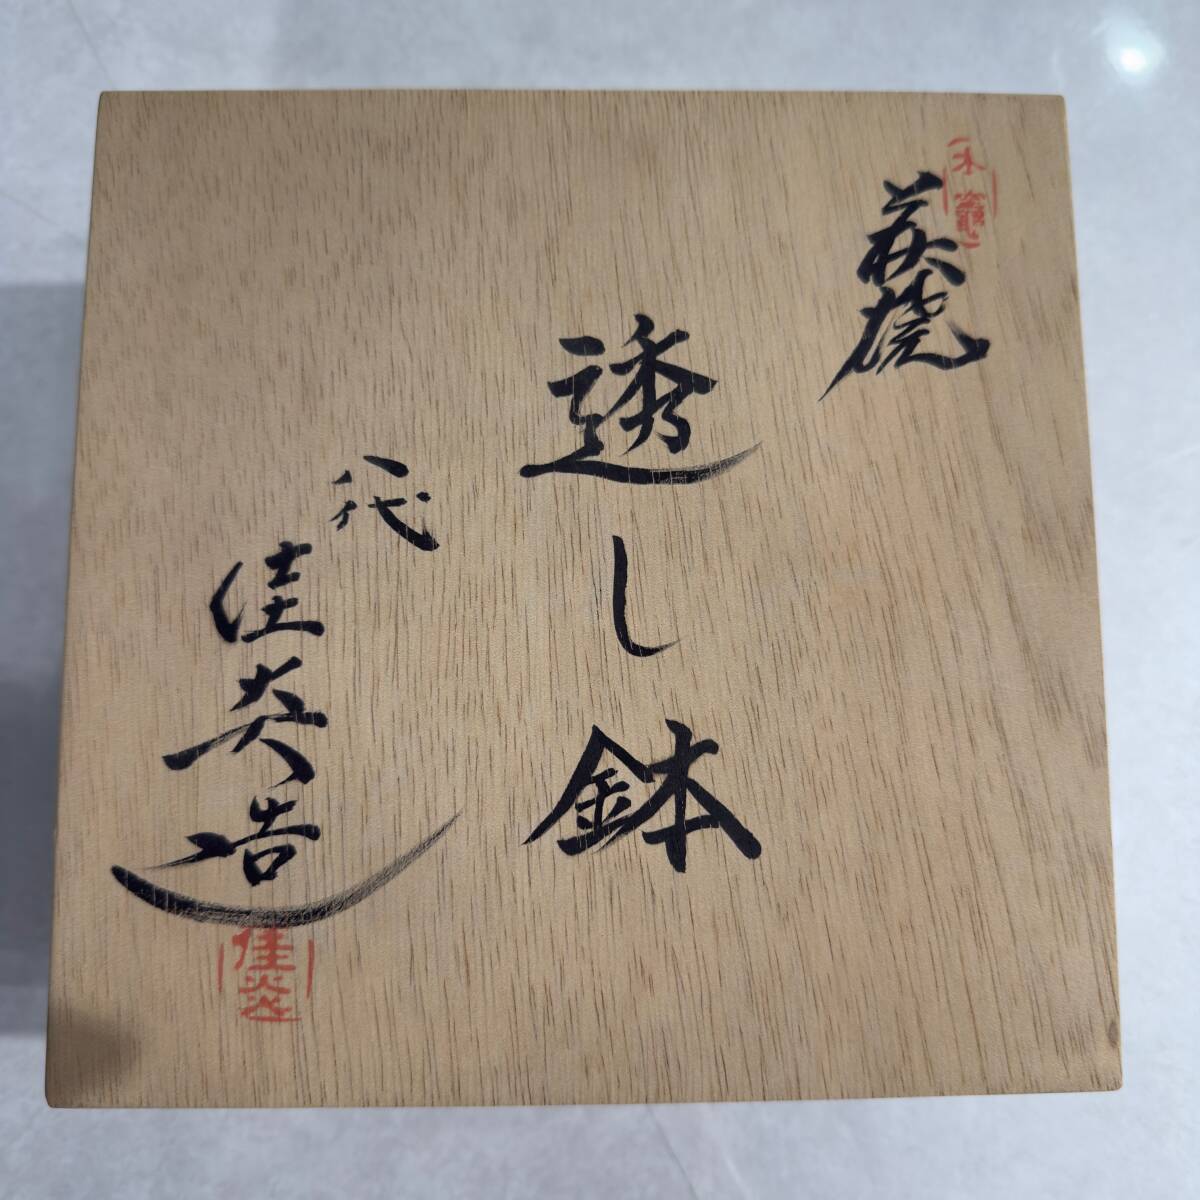 萩焼
透し鉢
八代
佳炎造
佳炎造